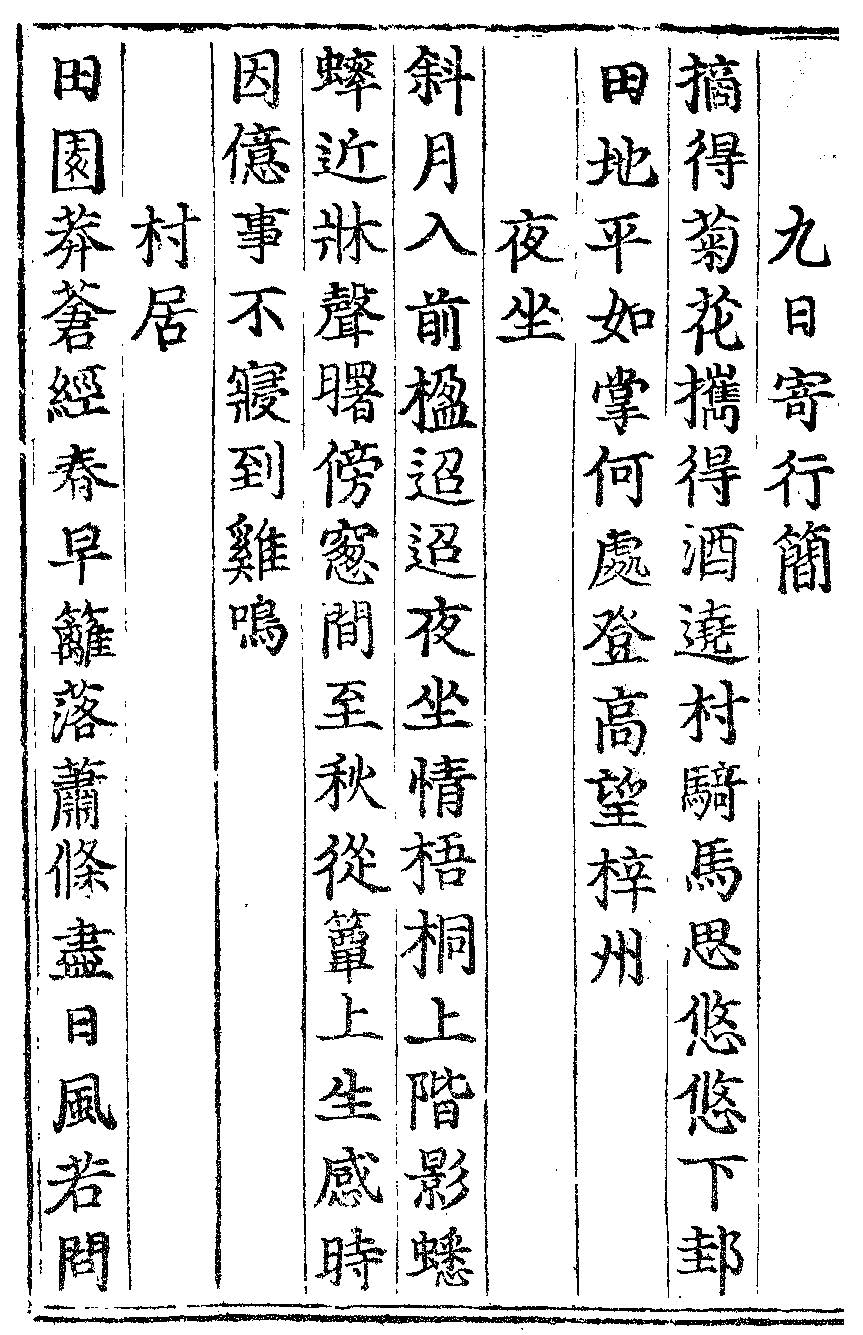 九日寄行簡
摘得菊花攜得酒遶村騎馬思悠悠下邽
田地平如掌何處登高望梓州
夜坐
斜月入前楹迢迢夜坐情梧桐上階影蟋
蟀近牀聲曙傍窓間至秋從簟上生感時
因億事不寢到雞鳴
村居
田園莽蒼經春早籬落蕭條盡日風若問